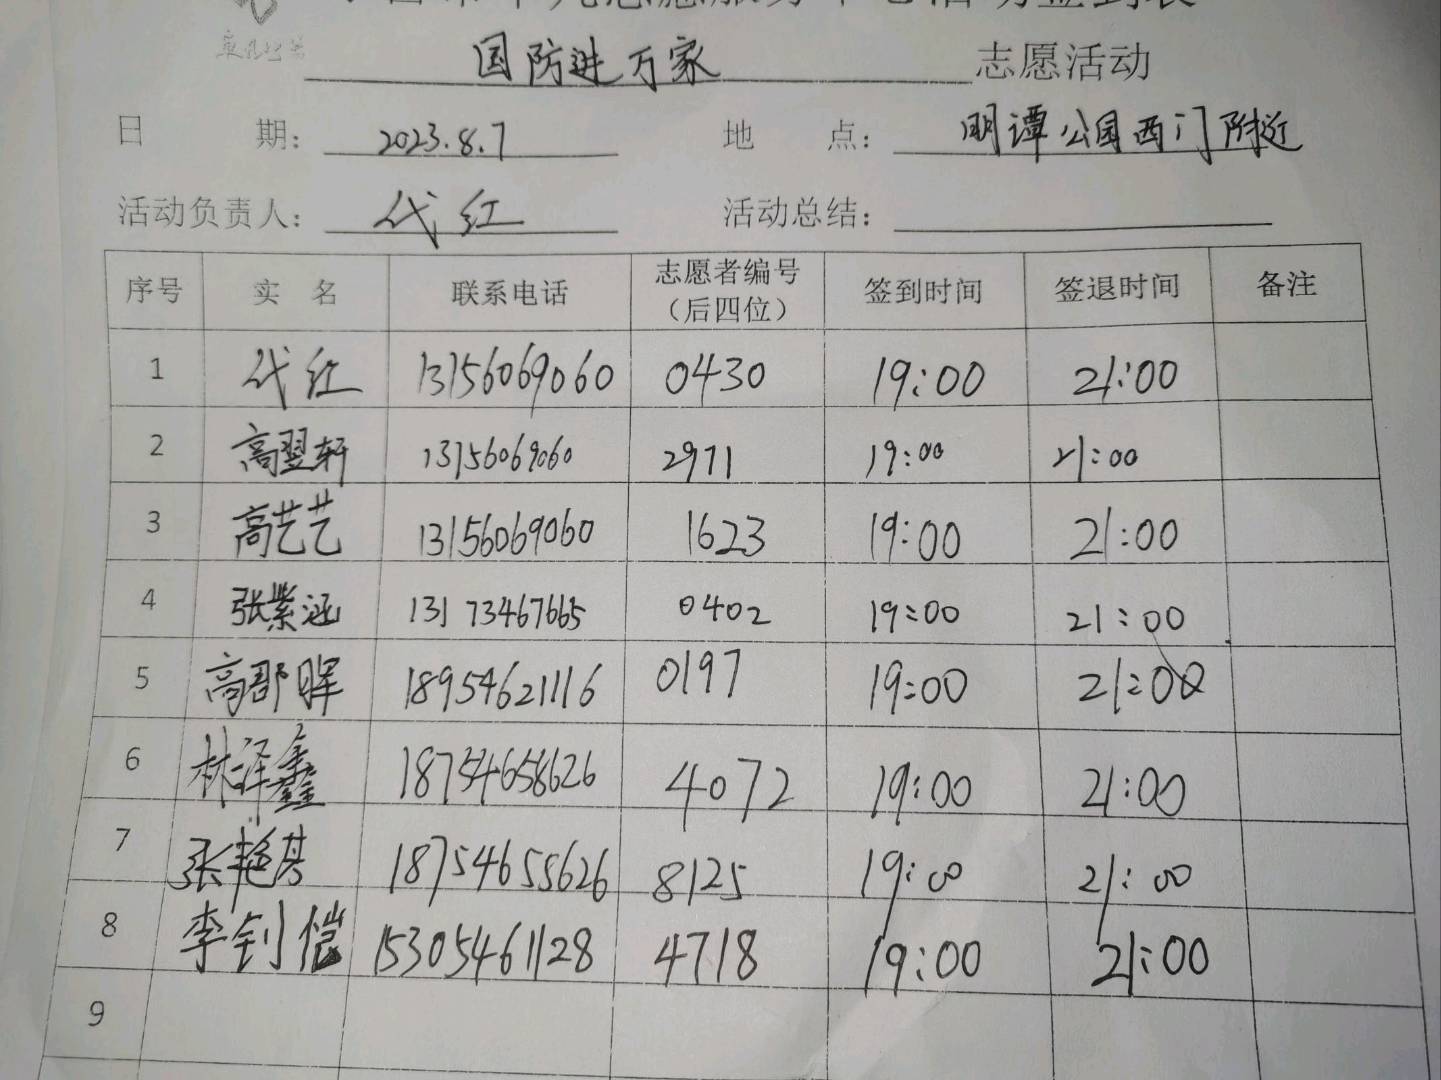 国防进万家 志愿活动
日 期: 2023.8.7 地 点: 明谭公园西门附近
活动负责人: 代红 活动总结:
序号 实 名 联系电话 志愿者编号（后四位） 签到时间 签退时间 备注
1 代红 13156069060 0430 19:00 21:00
2 高翌轩 13156069060 2971 19:00 21:00
3 高艺艺 13156069060 1623 19:00 21:00
4 张紫涵 13173467665 0402 19:00 21:00
5 高郡晖 18954621116 0197 19:00 21:00
6 林泽鑫 18754658626 4072 19:00 21:00
7 张艳芬 18754658626 8125 19:00 21:00
8 李钊恺 15305461128 4718 19:00 21:00
9